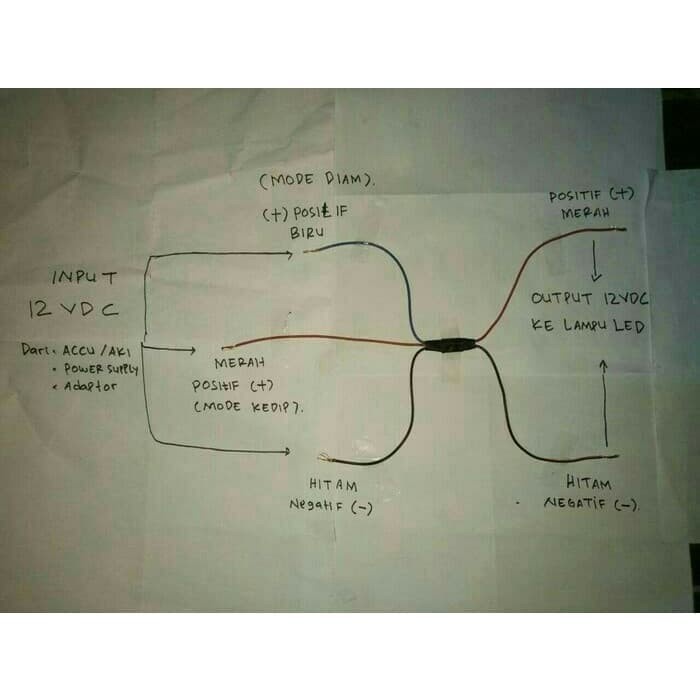 (MODE DIAM).
(+) POSITIF
BIRU
INPUT
12 VDC
Dari • ACCU / AKI
• POWER SUPPLY
• Adaptor
MERAH
POSITIF (+)
(MODE KEDIP).
HITAM
Negatif (-)
POSITIF (+)
MERAH
OUTPUT 12VDC
KE LAMPU LED
HITAM
NEGATIF (-).